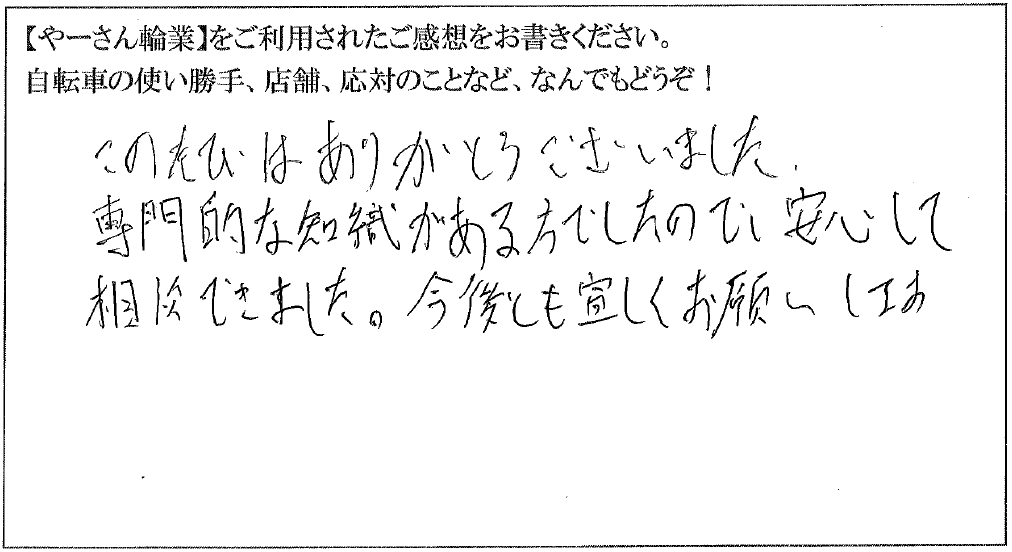 【やーさん輪業】をご利用されたご感想をお書きください。
自転車の使い勝手、店舗、応対のことなど、なんでもどうぞ！
このたびはありがとうございました。
専門的な知識がある方でしたので、安心して
相談できました。今後とも宜しくお願いします